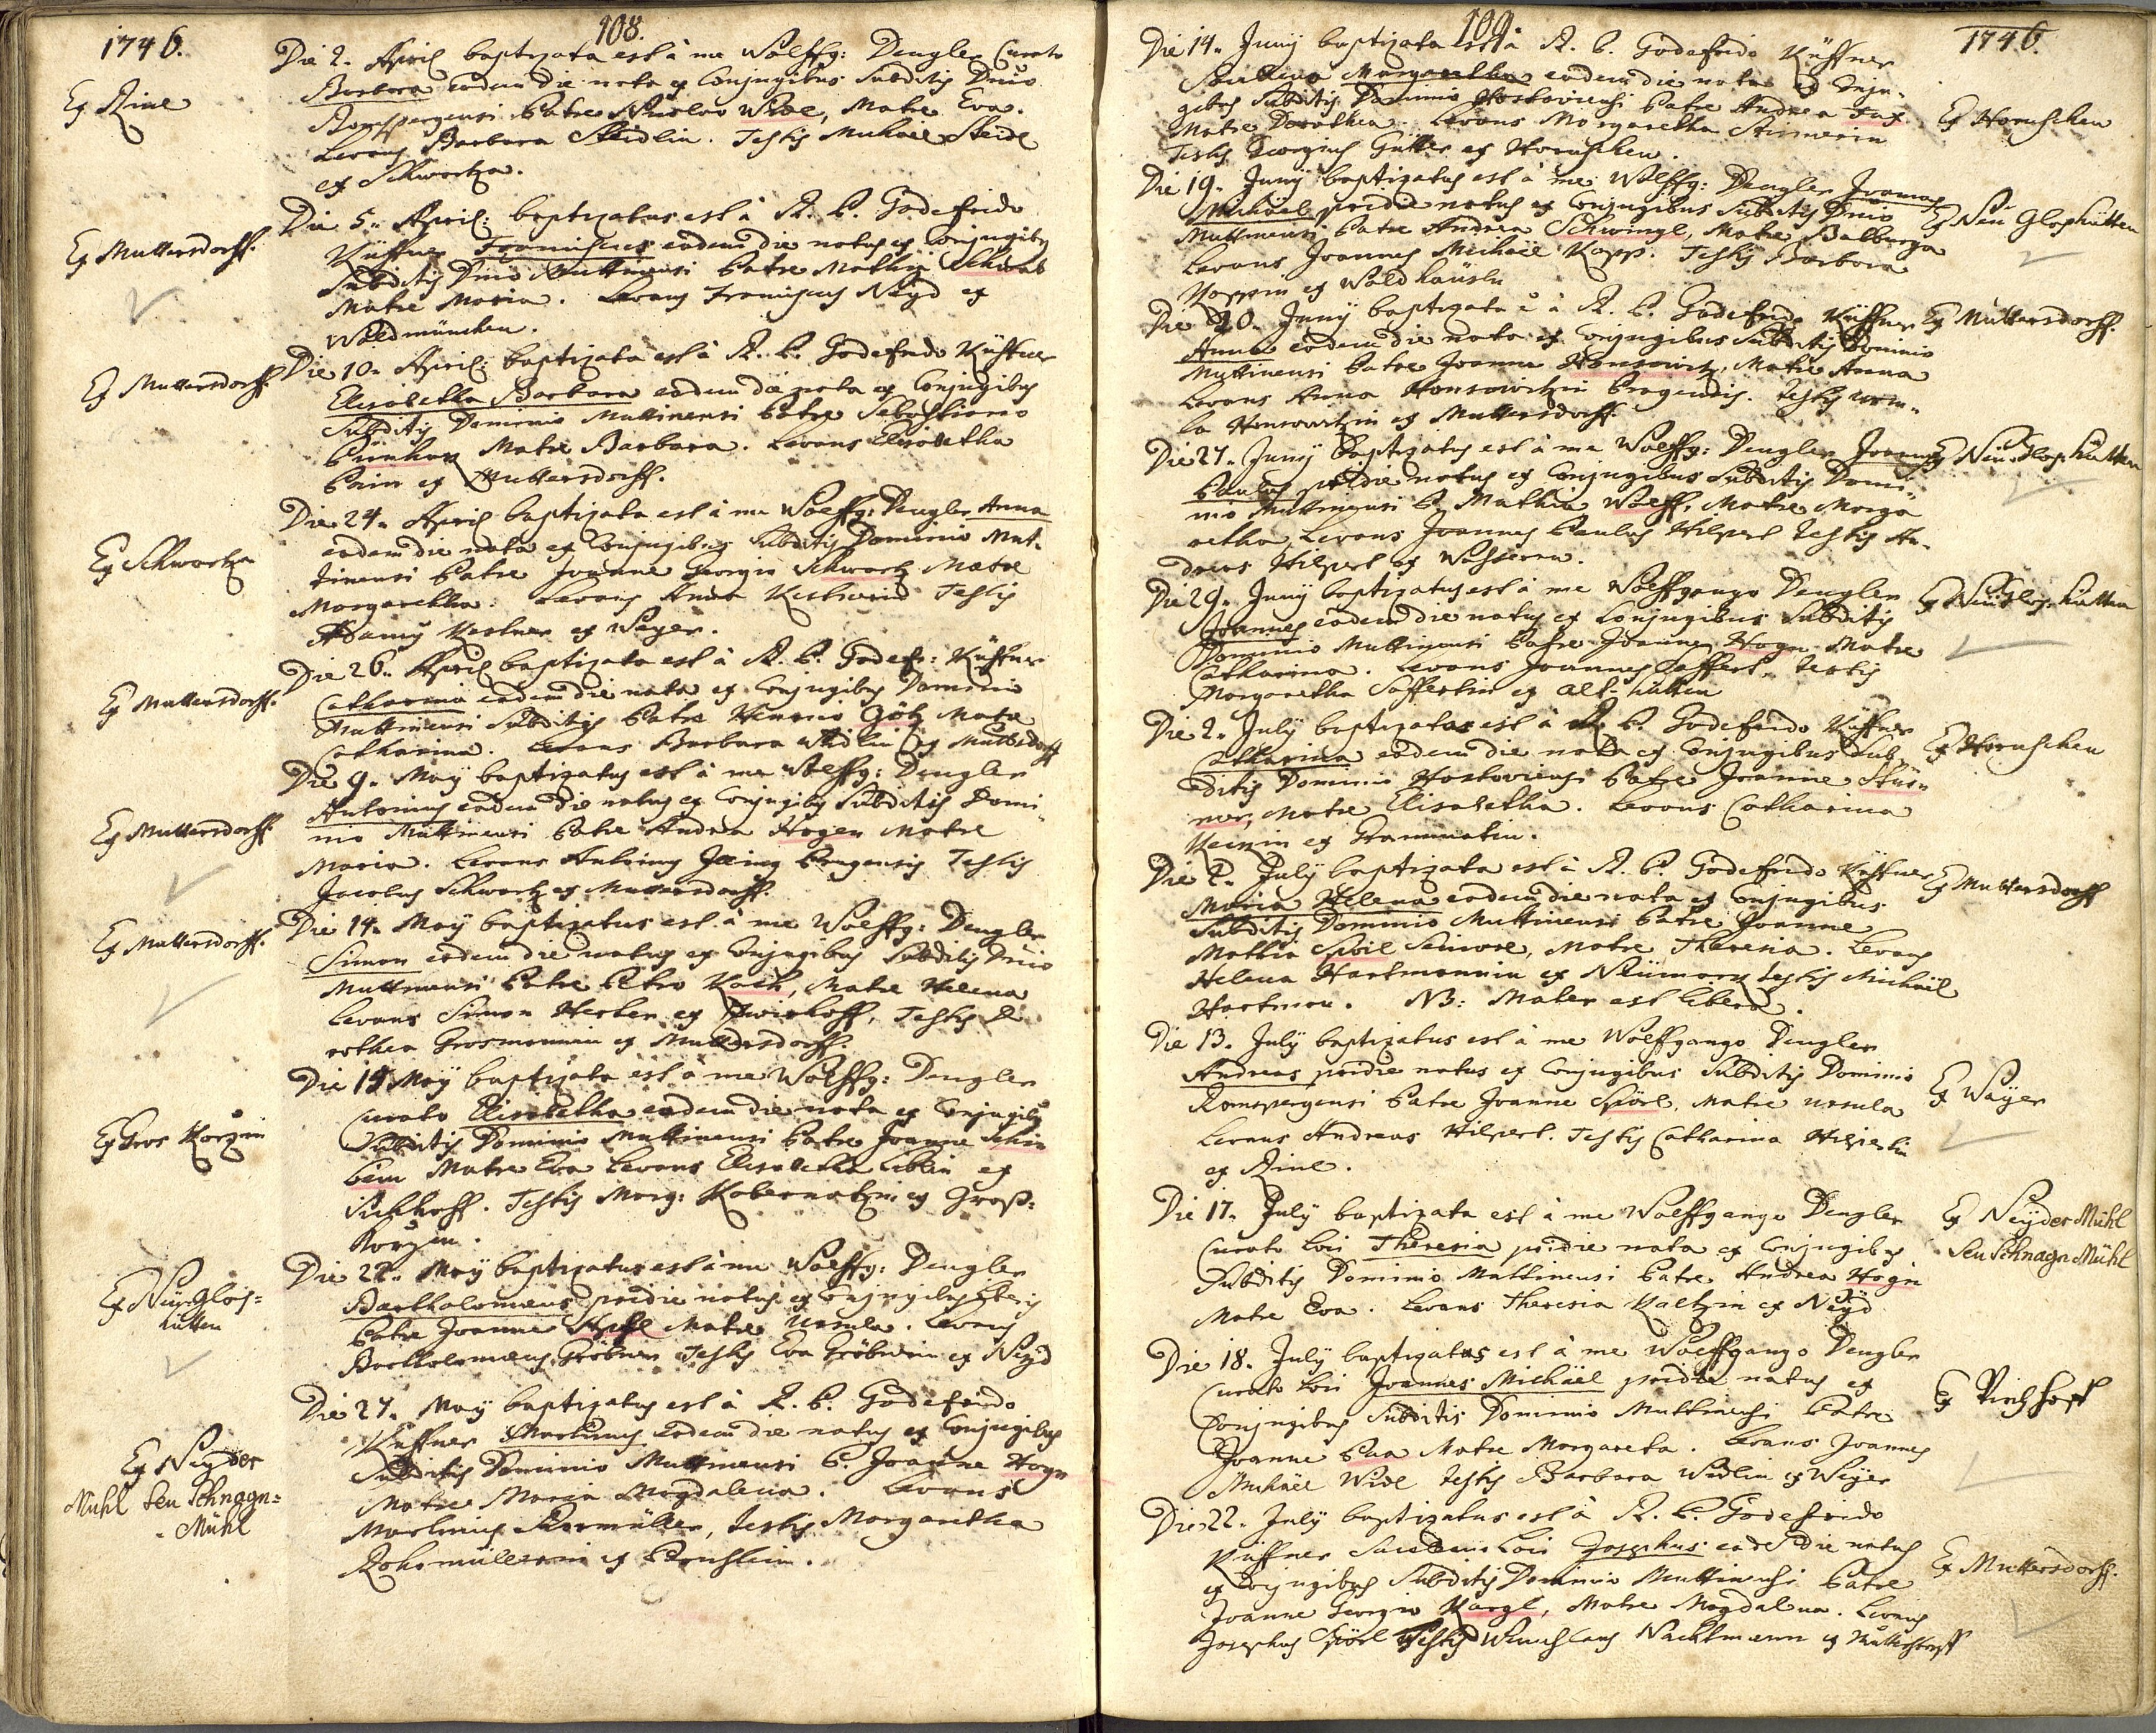 108.
1746.
Die 2. April baptizata est à me Wolffg: Dengler Curato
Ex Rinl
Barbara eadem die nata ex Conjugibus Subditis Dnio
Ronspergensi Patre Widl, Matre Eva.
Levans Barbara Steidlin. Testis Michäel Steidl
ex Schwartza.
Die 5. April: baptizatus est à R. P. Godefrido
Ex Muttersdorff.
Küffner Franciscus eadem die natus ex Conjugibus
Subditis Dnio Muttinensi Patre Mathia Schwab
Matre Maria. Levans Franciscus Neyd ex
Waldmünchen.
Die 10. April: baptizata est à R. P. Godefrido Küffner
Ex Muttersdorff.
Elisabetha Barbara eadem die nata ex Conjugibus
Subditis Dominio Muttinensi Patre Sebastiano
Matre Barbara. Levans Elisabetha
ex Muttersdorff.
Die 24. April baptizata est à me Wolffg: Dengler Anna
Ex Schwartza
eadem die nata ex Conjugibus Subditis Dominio Mut-
tinensi Patre Joanne Georgio Schwartz Matre
Margaretha. Levans Anna Testis
Adamus Kestner ex Wayer.
Die 26. April baptizata est à R. P. Godefr: Küffner
Ex Muttersdorff.
Catharina eadem die nata ex Conjugibus Dominio
Muttinensi Subditis Patre Henrico Götz Matre
Catharina. Levans Barbara Widlin ex Muttersdorff
Die 9. May baptizatus est à me Wolffg: Dengler
Ex Muttersdorff.
Antonius eadem die natus ex Conjugibus Subditis Domi-
nio Muttinensi Patre Andrea Hogen Matre
Maria. Levans Antonius Pragensis Testis
Jacobus Schwartz ex Muttersdorff.
Die 14. May baptizatus est à me Wolffg: Dengler
Ex Muttersdorff.
Simon eadem die natus ex Conjugibus Subditis Dnio
Muttinensi Patre Petro Koch, Matre Helena
Levans Simon Herber ex Testis D
orothea Grosmannin ex Muttersdorff.
Die 15 May baptizata est à me Wolffg: Dengler
Ex Gros Korzin
Curato Elisabetha eadem die nata ex Conjugibus
Subditis Dominio Muttinensi Patre Joanne
Matre Eva Levans Elisabetha Liblin ex
Sichhoff. Testis Marg: Kobernatzin ex Groß-
Korzin.
Die 22. May baptizatus est à me Wolffg: Dengler
Ex Neu Glas-
hütten
Bartholomæus pridie natus ex Conjugibus Liberis
Patre Joanne Apfl Matre Ursula. Levans
Bartholomæus Gröbner Testis Eva Gröbnerin ex Neyd
Die 27. May baptizatus est à R. P. Godefrido
Ex Neyder
Mühl seu Schnagn-
Mühl
Küffner Martinus eadem die natus ex Conjugibus
Subditis Dominio Muttinensi P. Joanne Hogn
Matre Maria Magdalena. Levans
Martinus Rormüller, testis Margaretha
Rohrmüllerin ex
109.
1746.
Die 14. Juny baptizata est à R. P. Godefrido Küffner
Margaretha eadem die nata ex Conju-
gibus Subditis Dominio Hostoviensi Patre Andrea Fux
Ex Horuschen
Matre Dorothea. Levans Margaretha
Testis Georgius ex Horuschen.
Die 19. Juny baptizatus est à me Wolffg: Dengler Joannes
Michäel pridie natus ex Conjugibus Subditis Dnio
Ex Neu Glashütten
Muttinensi Patre Andrea Schwingl, Matre Balburga
Levans Joannes Michäel Kapp. Testis Barbara
Kappin ex Waldhäusln
Die 20. Juny baptizata e à R. P. Godefrido Küffner
Ex Muttersdorff.
Anna eadem die nata ex Conjugibus Subditis Dominio
Muttinensi Patre Joanne Honsowitz, Matre Anna
Levans Anna Honsowitzin Pragensis. Testis Ursu-
la Honsowitzin ex Muttersdorff.
Die 27. Juny baptizatus est à me Wolffg: Dengler Joannes
Ex Neu Glashütten
Paulus pridie natus ex Conjugibus Subditis Domi-
nio Muttinensi P. Mathia Wolff, Matre Marga
retha Levans Joannes Paulus Hilpert Testis An-
dreas Hilpert ex
Die 29. Juny baptizatus est à me Wolffgango Dengler
Ex Neu Glashütten
Joannes eadem die natus ex Conjugibus Subditis
Dominio Muttinensi Patre Joanne Hogn Matre
Catharina. Levans Joannes Saffert. Testis
Margaretha Saffertin ex Alt-hütten
Die 2. July baptizata est à R. P. Godefrido Küffner
Ex Horuschen
Catharina eadem die nata ex Conjugibus Sub-
ditis Dominio Hostoviensi Patre Joanne Stür-
mer, Matre Elisabetha. Levans Catharina
ex Grammatin.
Die 2. July baptizata est à R. P. Godefrido Küffner
Ex Muttersdorff
Maria Helena eadem die nata ex Conjugibus
Subditis Dominio Muttinensi Patre Joanne
Mathia Seniore, Matre Theresia. Levans
Helena Hartmannin ex Neümarg testis Michäel
Hartman. NB: Mater est libera.
Die 13. July baptizatus est à me Wolffgango Dengler
Andreas pridie natus ex Conjugibus Subditis Dominio
Ex Wayer
Ronspergensi Patre Joanne Spörl, Matre Ursula
Levans Andreas Hilpert. Testis Catharina Hilpertin
ex Rinl.
Die 17. July baptizata est à me Wolffgango Dengler
Ex Neyder Mühl
seu Schnagn Mühl
Curato loci Theresia pridie nata ex Conjugibus
Subditis Dominio Muttinensi Patre Andrea Hogn
Matre Eva. Levans Theresia Kaltzin ex Neyd
Die 18. July baptizatus est à me Wolffgango Dengler
Curato loci Joannes Michäel pridie natus ex
Conjugibus Subditis Dominio Muttinensi Patre
Joanne Matre Margareta. Levans Joannes
Michäel Widl testis Barbara Widlin ex Wayer
Die 22. July baptizatus est à R. P. Godefrido
Küffner loci Josephus eadem die natus
Ex Muttersdorff.
ex Conjugibus Subditis Dominio Muttinensi Patre
Joanne Georgio Kargl, Matre Magdalena. Levans
Josephus Spörl Testis Wenceslaus Nachtmann ex Muttersdorff